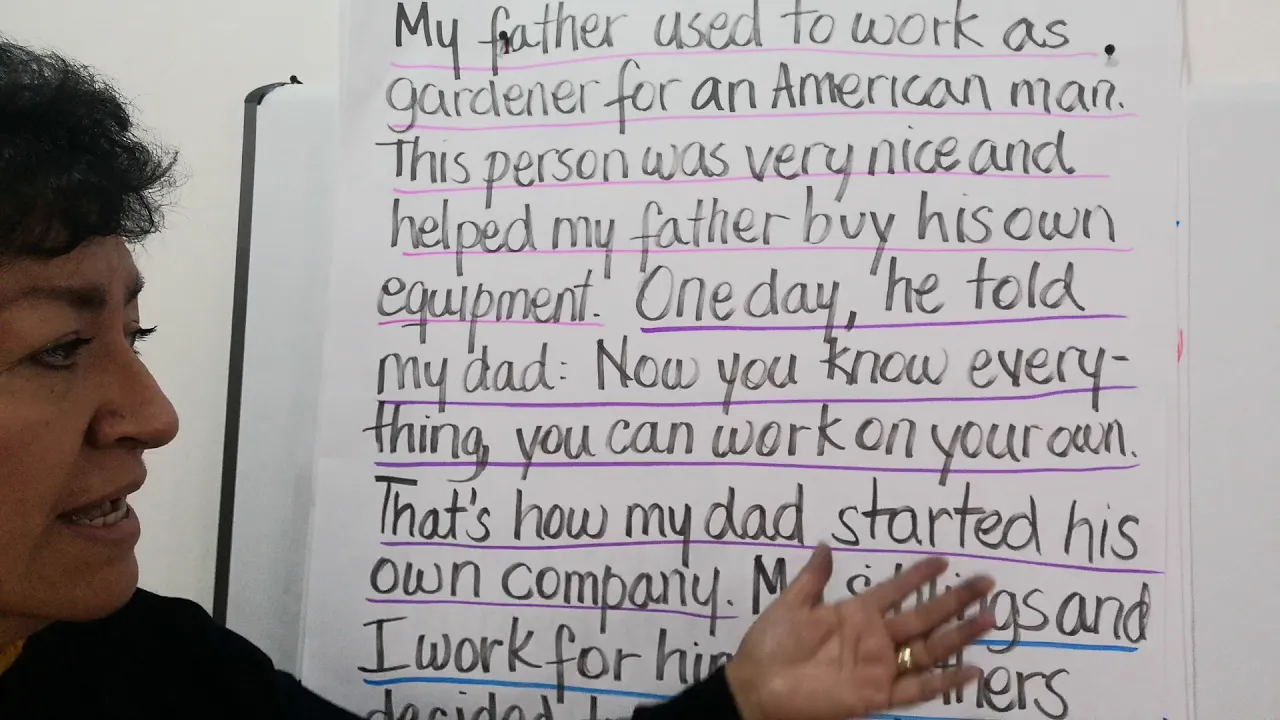 My father used to work as
gardener for an American man.
This person was very nice and
helped my father buy his own
equipment. One day, he told
my dad: Now you know every-
thing, you can work on your own.
That's how my dad started his
own company. and
I work for
decided